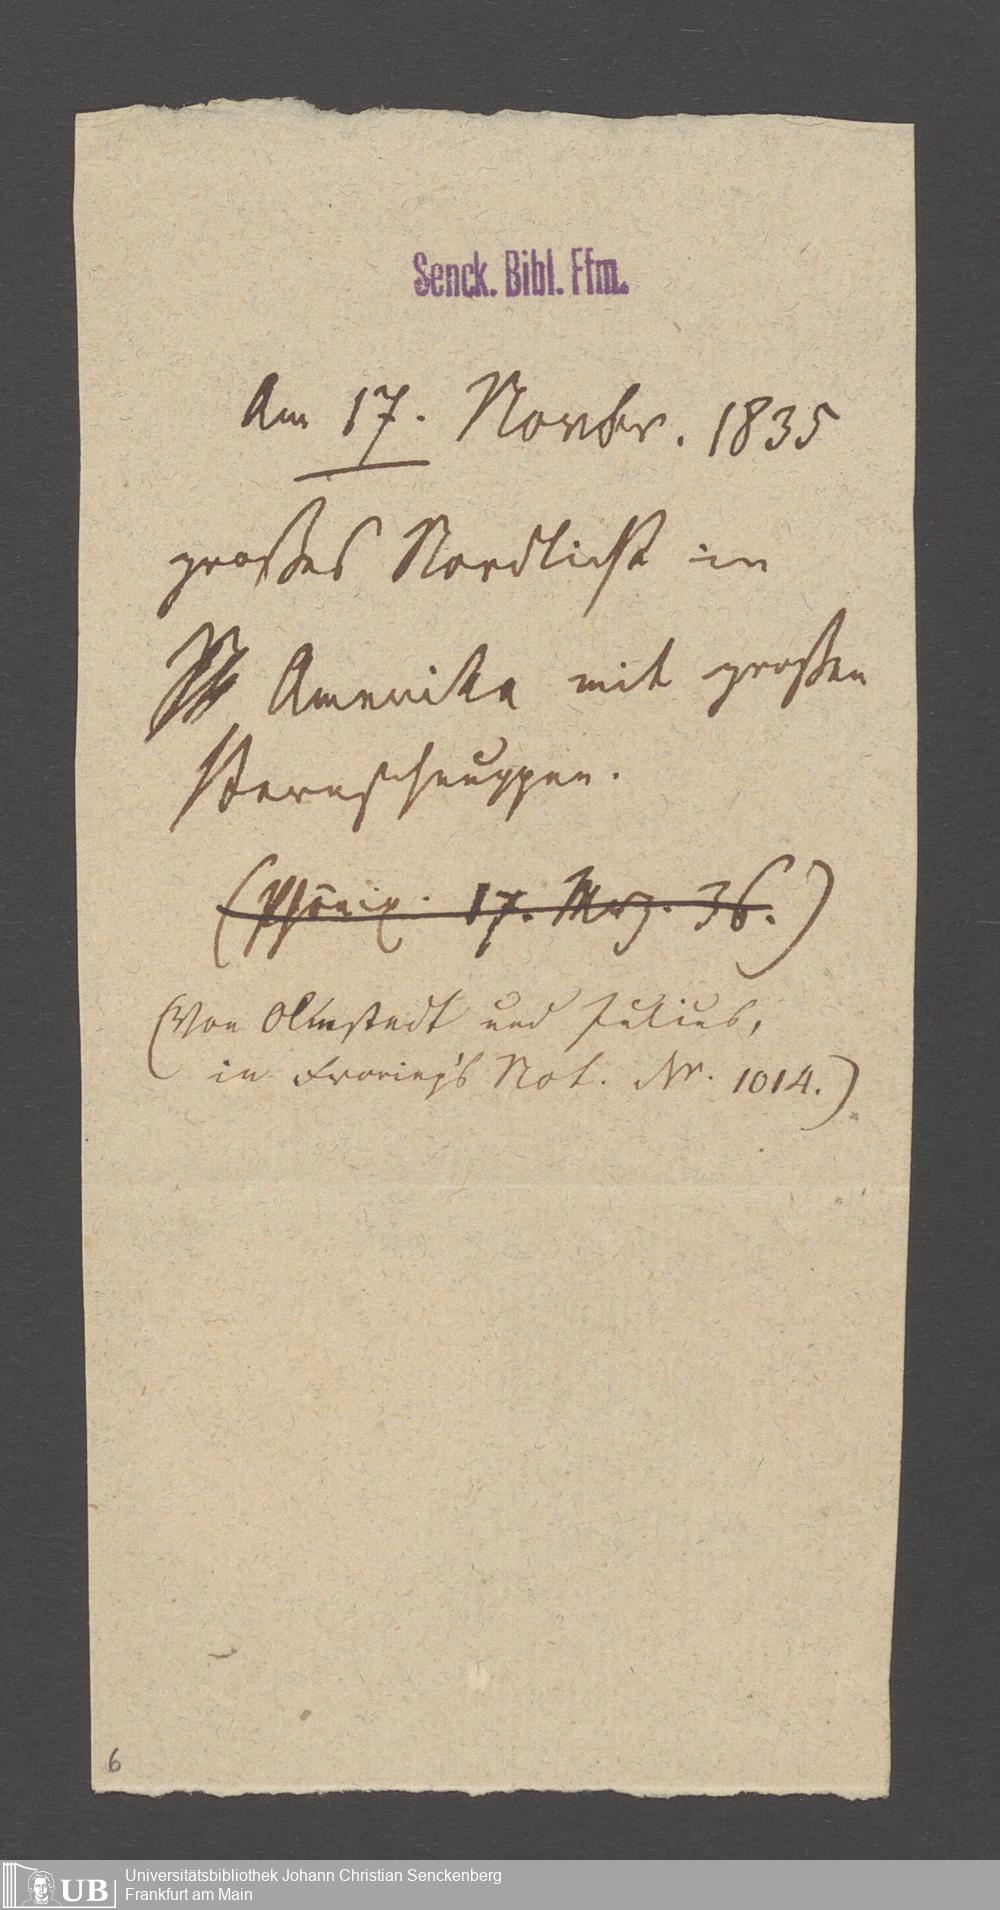 Senck. Bibl. Ffm.
Am 17. Novbr. 1835
großes Nordlicht in
Amerika mit großen
Sternschnuppen.
(Phönix. 17. Mrz. 36.)
(Von Olmstedt und Julius,
in Froriep's Not. Nr. 1014.)
6
UB
Universitätsbibliothek Johann Christian Senckenberg
Frankfurt am Main